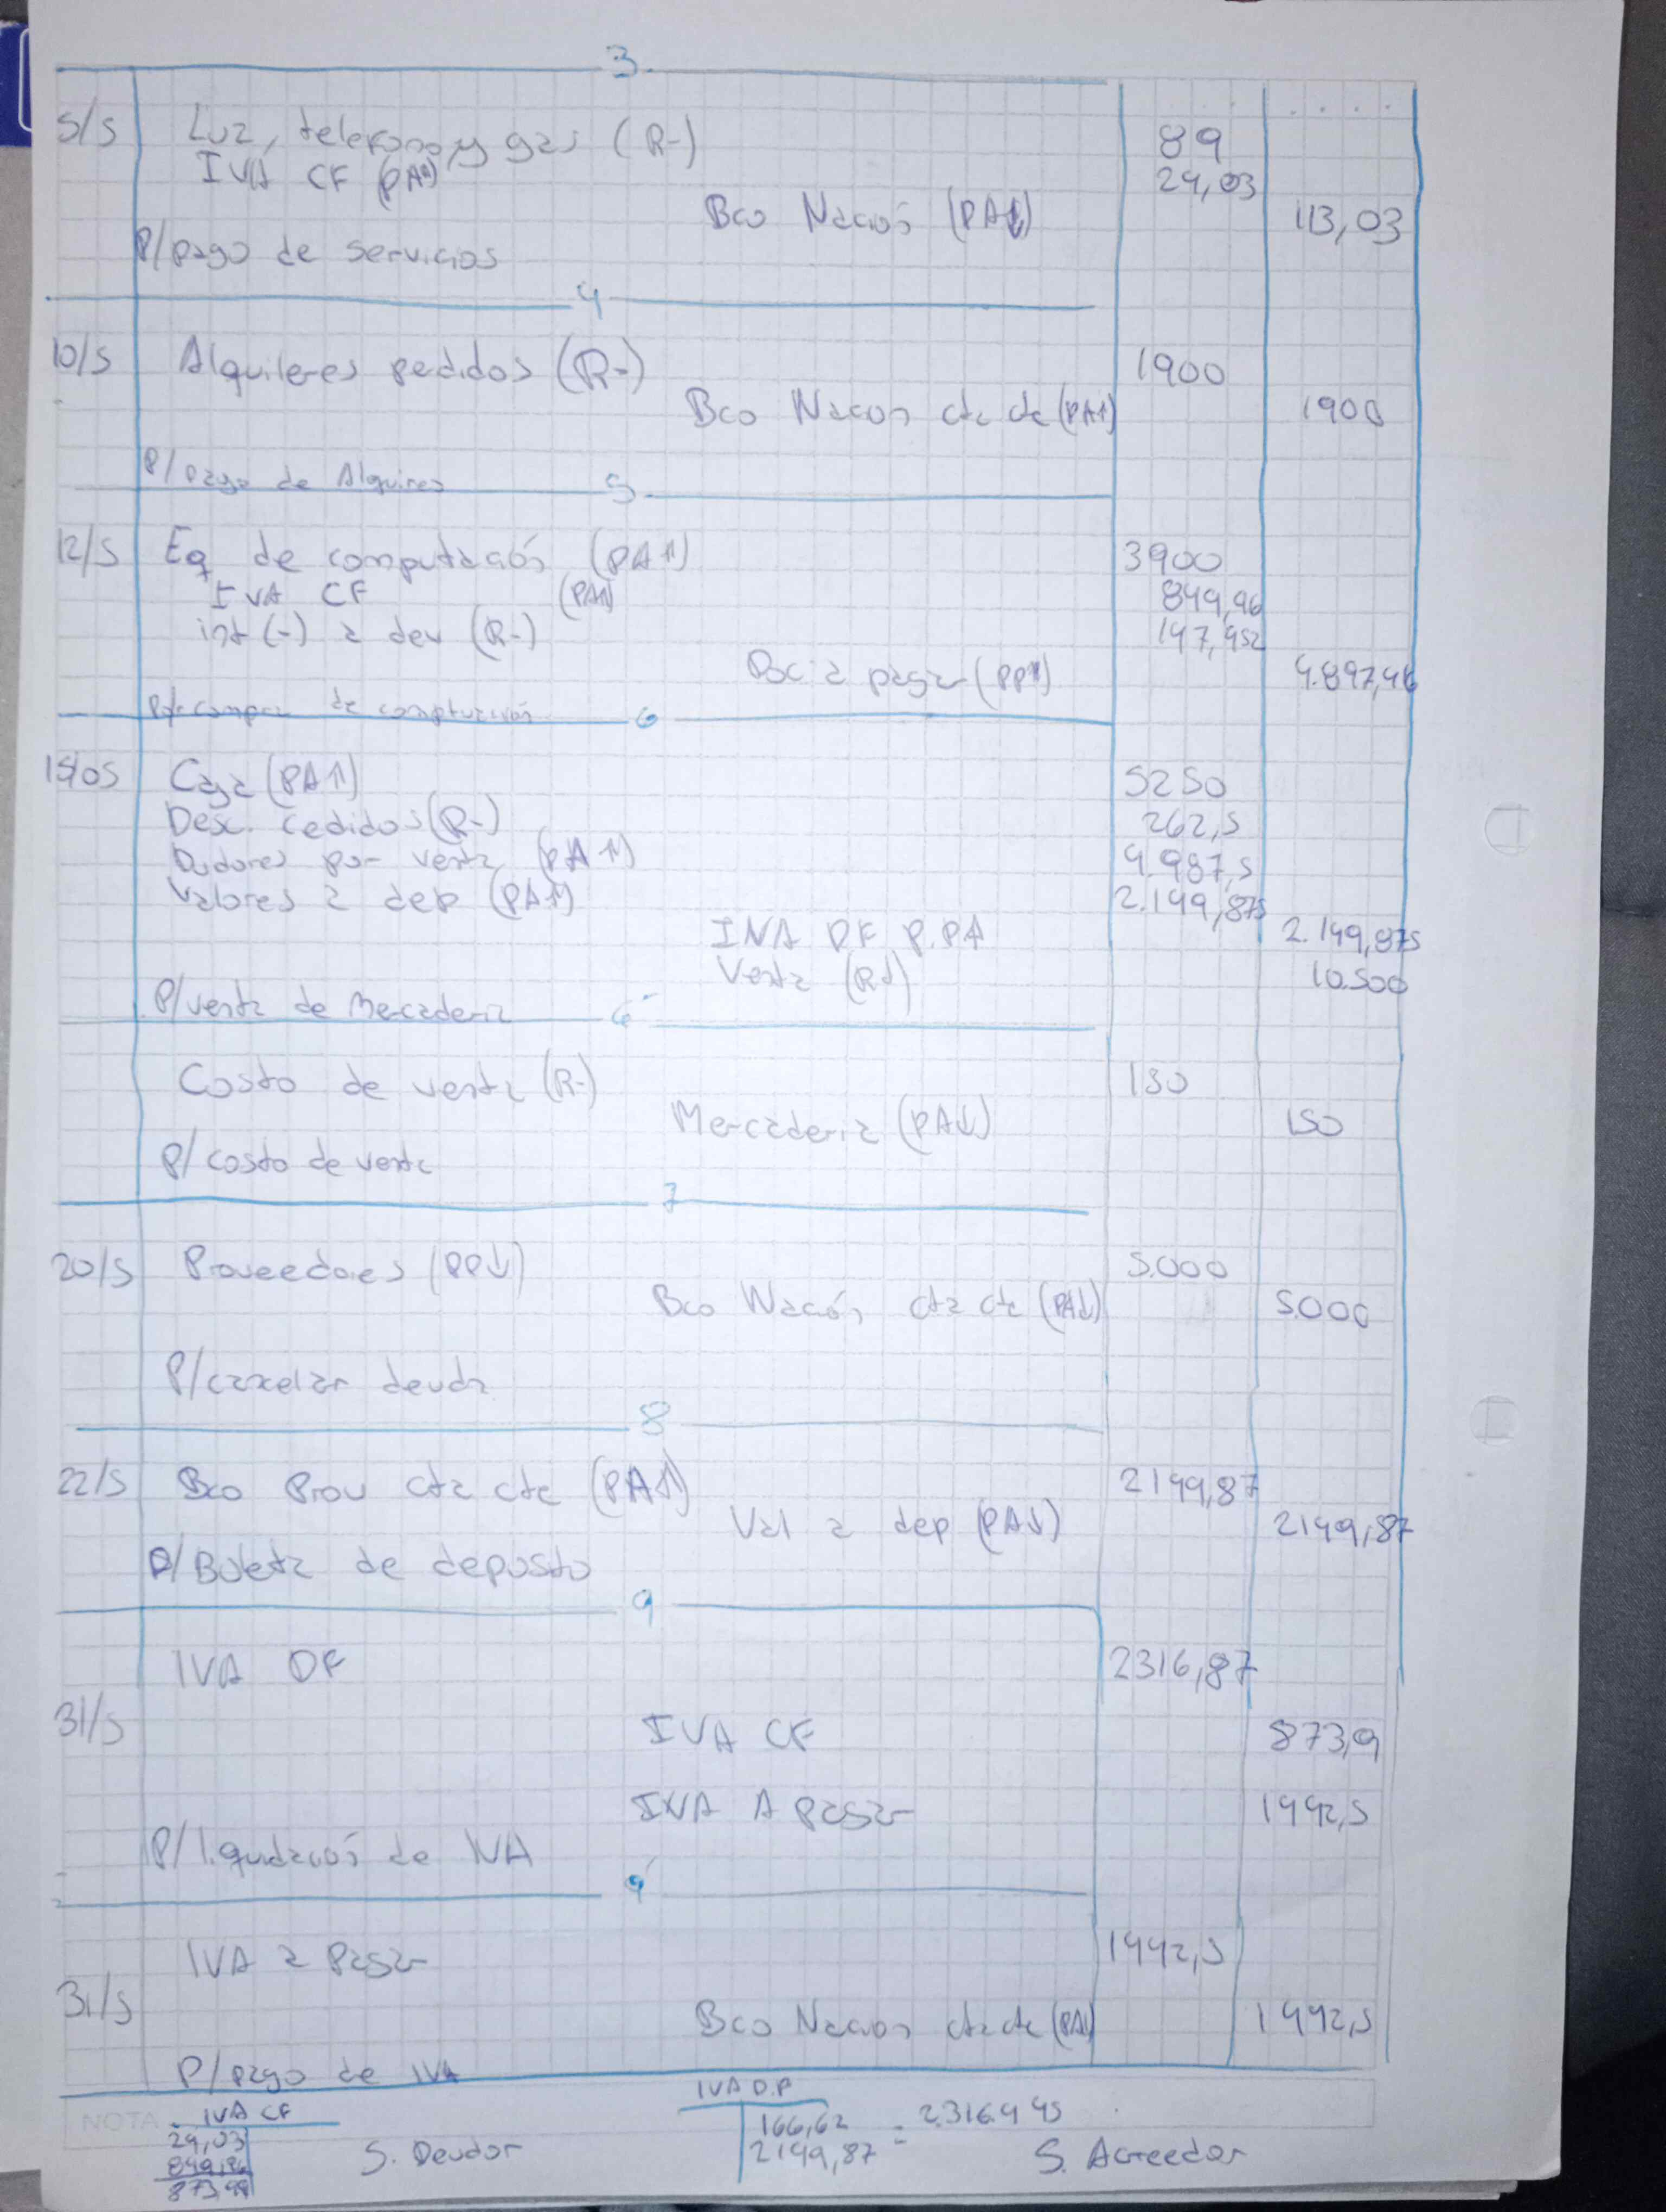 3
5/5 Luz, telefono y gas (R-) 89
IVA CF (PA↑) 24,03
Bco Nación (PA↓) 113,03
P/pago de servicios
4
10/5 Alquileres pedidos (R-) 1900
Bco Nacion cta cte (PA↑) 1900
P/ pago de Alquires
5
12/5 Eq de computación (PA↑) 3900
IVA CF (PA↑) 849,96
int (-) a dev (R-) 147,452
a pagar (PP↑) 4.897,46
6
15/05 Caja (PA↑) 5250
Desc. cedidos (R-) 262,5
por venta (PA↑) 4.987,5
Valores a dep (PA↑) 2.149,875
IVA DF P.PA 2.149,875
Venta 10.500
P/venta de Mercaderia
6'
Costo de venta (R-) 150
Mercaderia (PA↓) 150
P/ costo de venta
7
20/5 Proveedores (PP↓) 5.000
Bco Nación cta cte (PA↓) 5.000
P/cancelar deuda
8
22/5 Bco Prov cta cte (PA↑) 2149,87
Val a dep (PA↓) 2149,87
P/Boleta de deposto
9
IVA DF 2316,87
31/5
IVA CF 873,9
IVA A Pagar 1442,5
P/liquidación de IVA
9'
IVA a Pagar 1442,5
31/5
Bco Nacion cta cte (PA↓) 1442,5
P/pago de IVA
NOTA
IVA CF
24,03
849,96
873,99
S. Deudor
IVA D.F
166,62 = 2.316.4 95
2149,87
S. Acreedor